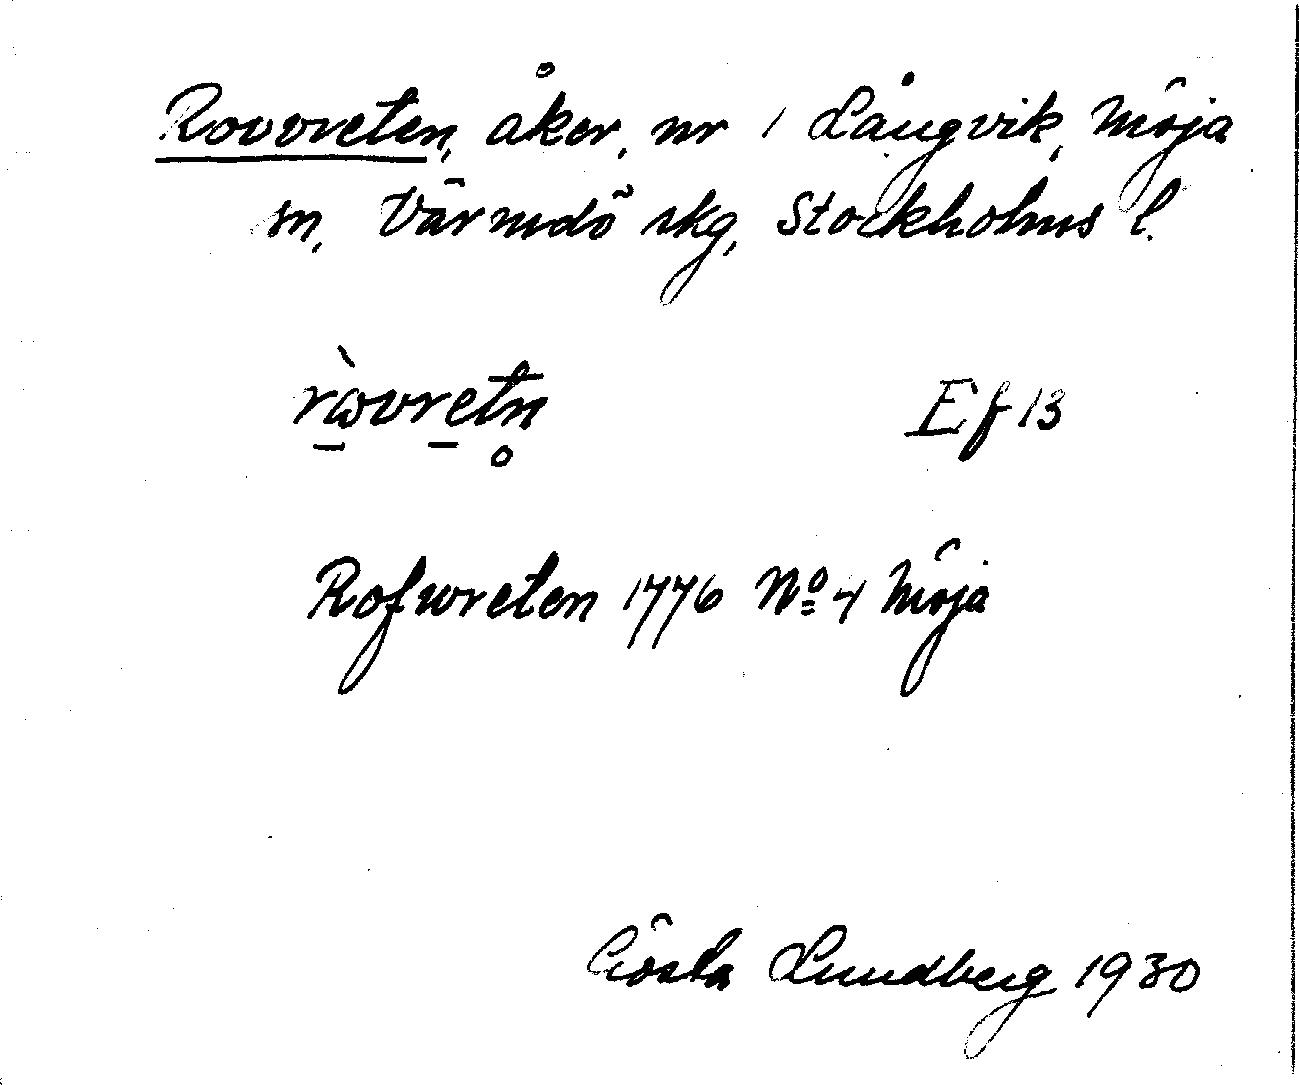 Rovvreten, åker, nr 1 Långvik, Möja
sn, Värmdö skg, Stockholms l.
rò̱vre̱tn̥ Ef 13
Rofwreten 1776 Nº 4 Möja
Gösta Lundberg 1930